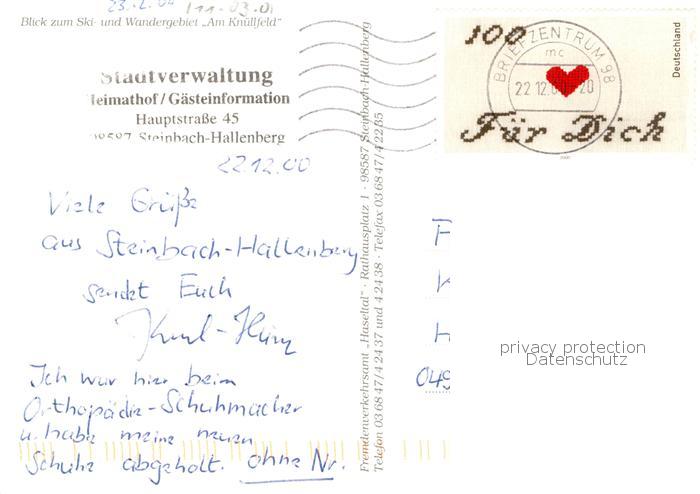 23.2.00 111-03.01
Blick zum Ski- und Wandergebiet „Am Knüllfeld“
Stadtverwaltung
Heimathof / Gästeinformation
Hauptstraße 45
98587 Steinbach-Hallenberg
22.12.00
Viele Grüße
aus Steinbach-Hallenberg
sendet Euch
Karl-Heinz
Ich war hier beim
Orthopädie-Schuhmacher
u. habe meine neuen
Schuhe abgeholt. ohne Nr.
Fremdenverkehrsamt „Haseltal“ · Rathausplatz 1 · 98587 Steinbach-Hallenberg
Telefon 03 68 47 / 4 24 37 und 4 24 38 · Telefax 03 68 47 / 4 22 35
100
Für Dich
Deutschland
2000
BRIEFZENTRUM 98
mc
22 12. 20
F
K
H
049
privacy protection
Datenschutz